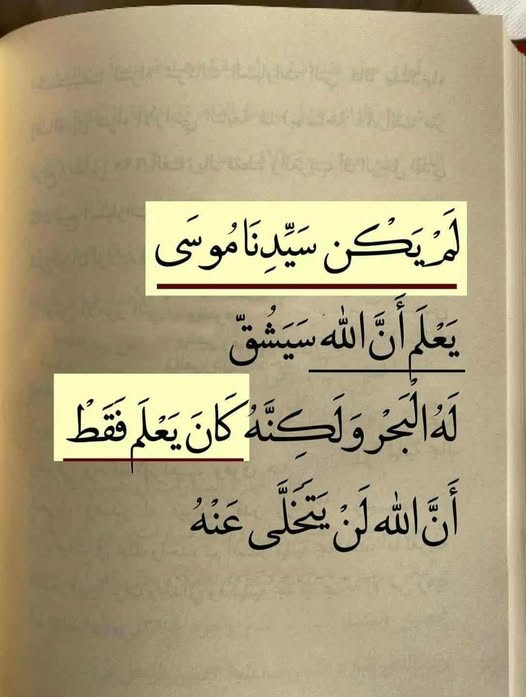 لَمْ يَكْن سَيِّدِنَا مُوسَى
يَعْلَم أَنَّ الله سَيَشُقّ
لَهُ الْبَحْر وَلَكِنَّهُ كَانَ يَعْلَم فَقَطْ
أَنَّ الله لَنْ يَتَخَلَّى عَنْهُ